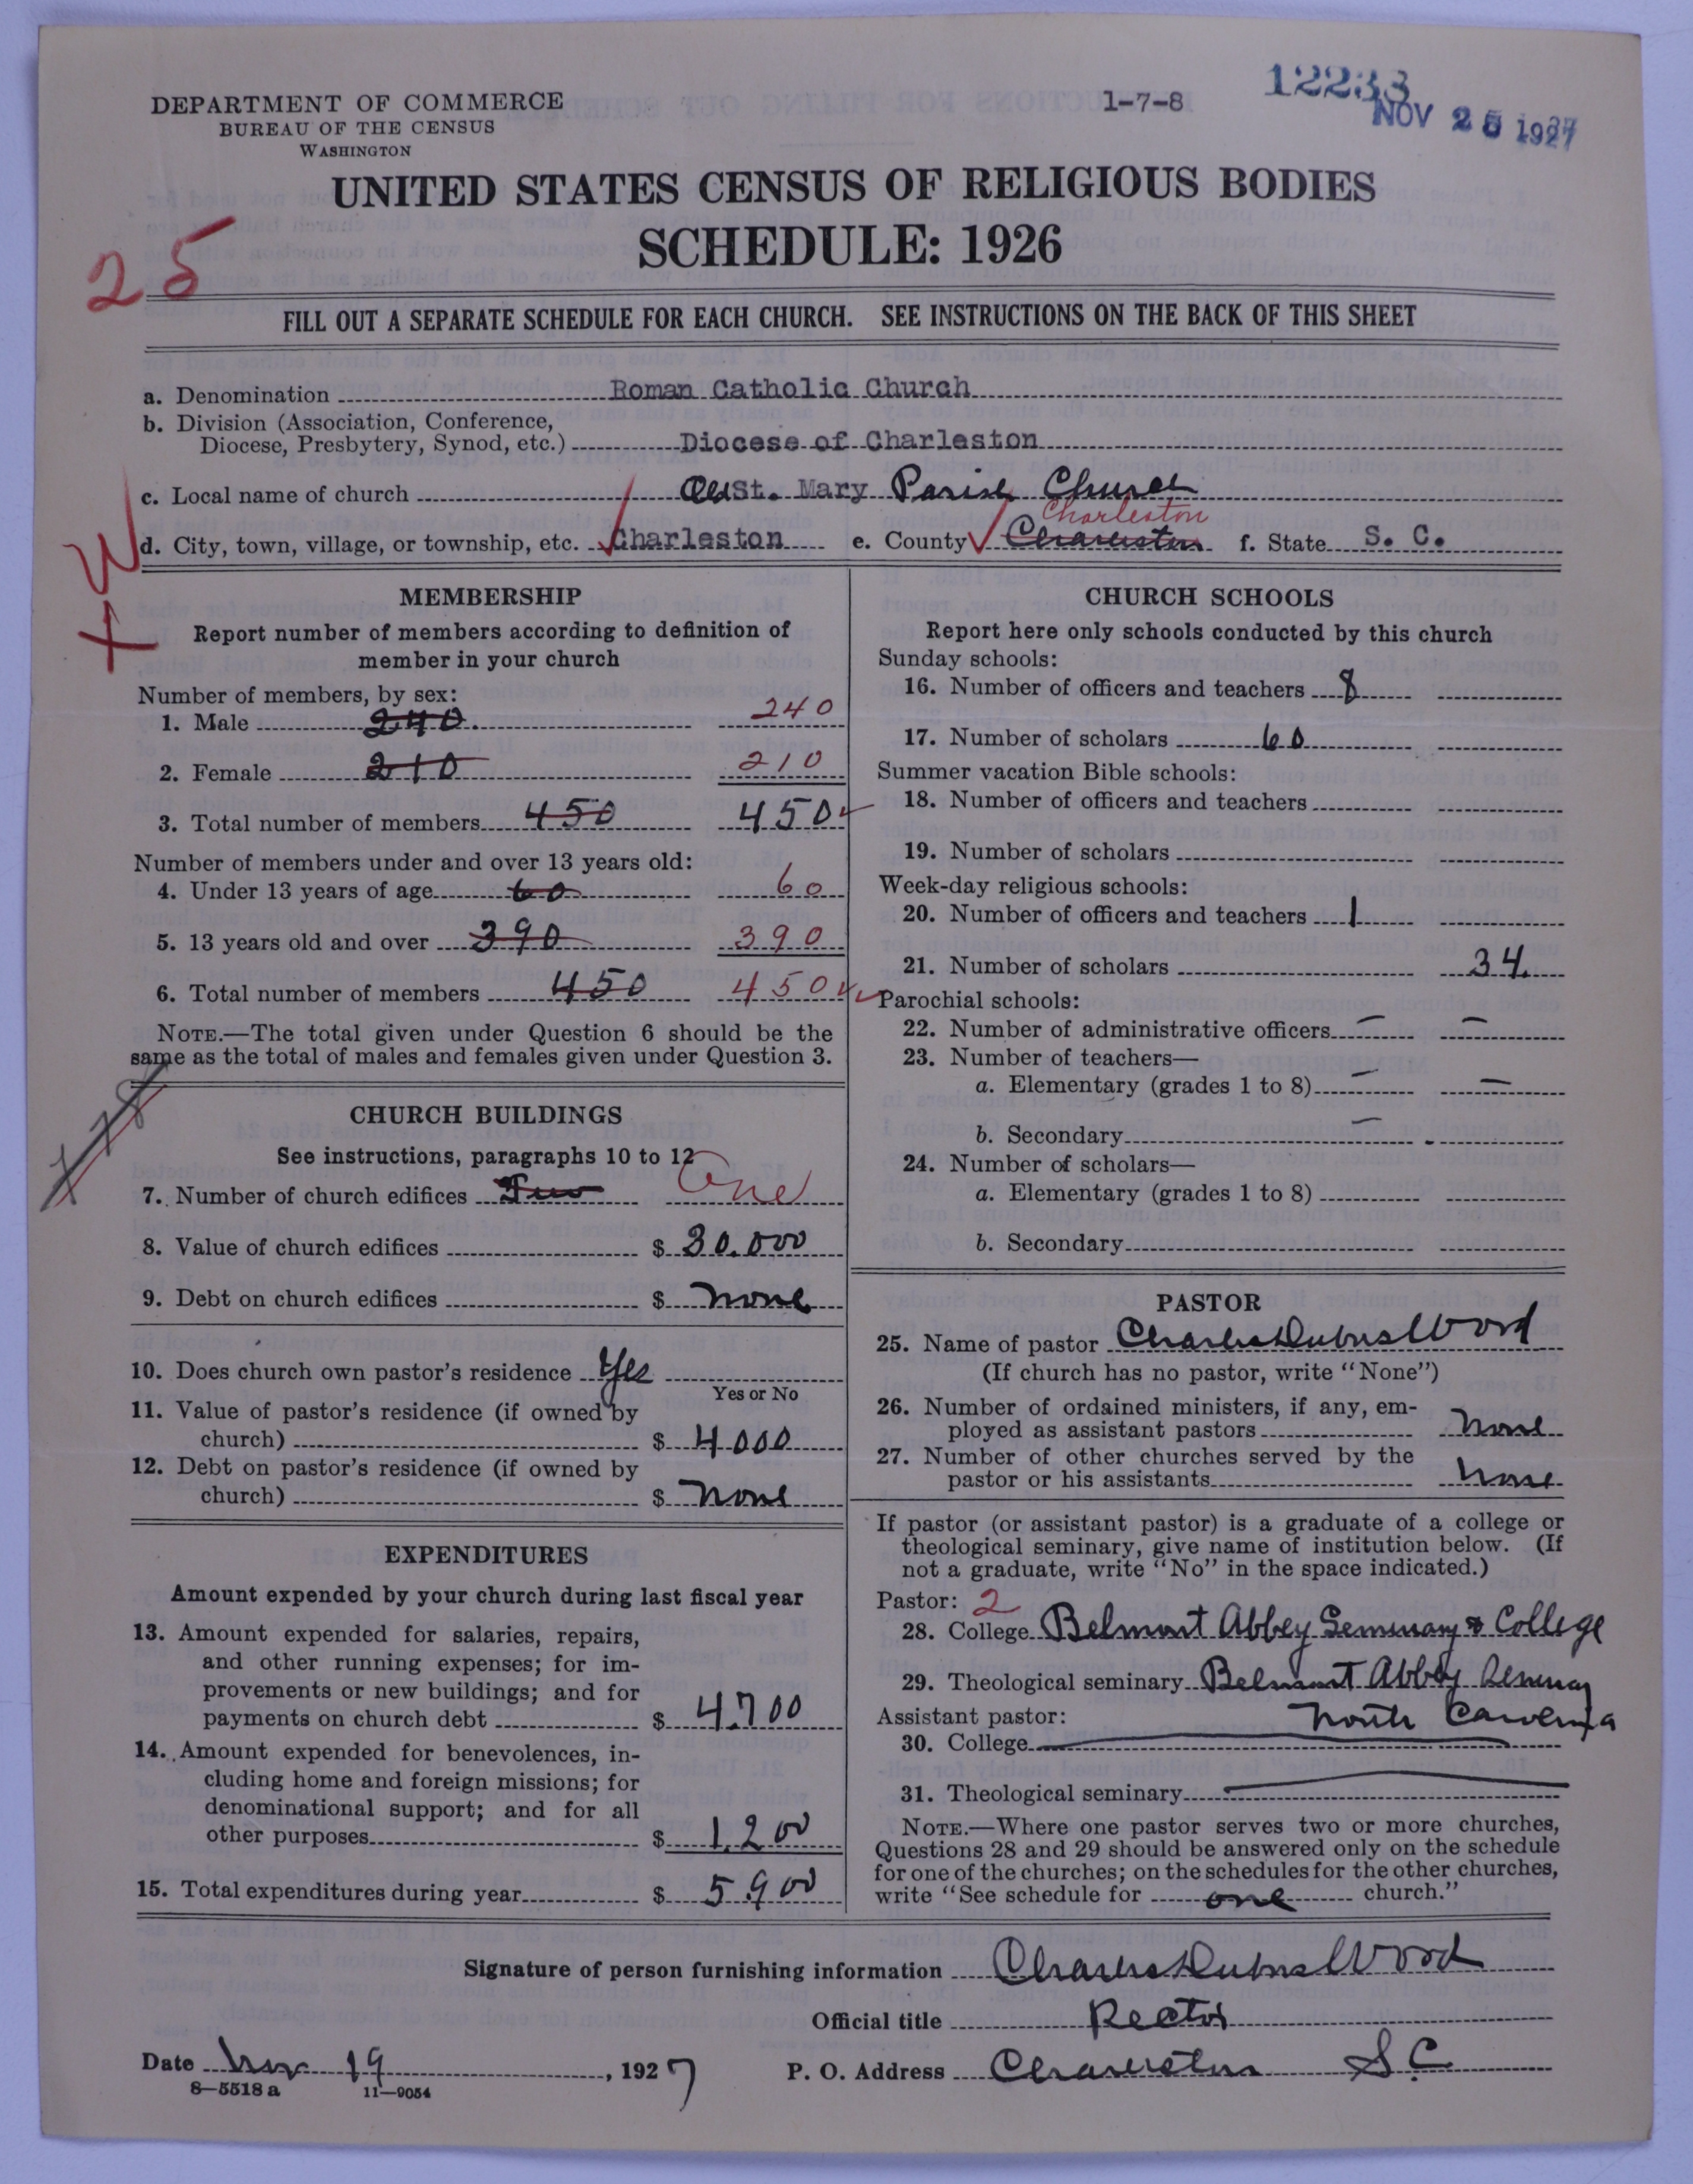 DEPARTMENT OF COMMERCE
BUREAU OF THE CENSUS
WASHINGTON
1-7-8
12233
NOV 25 1927
UNITED STATES CENSUS OF RELIGIOUS BODIES
SCHEDULE: 1926
25
FILL OUT A SEPARATE SCHEDULE FOR EACH CHURCH. SEE INSTRUCTIONS ON THE BACK OF THIS SHEET
a. Denomination Roman Catholic Church
b. Division (Association, Conference,
Diocese, Presbytery, Synod, etc.) Diocese of Charleston
c. Local name of church Old St. Mary Parish Church
Charleston
d. City, town, village, or township, etc. Charleston e. County Charleston f. State S. C.
W
MEMBERSHIP
Report number of members according to definition of
member in your church
Number of members, by sex:
1. Male 240. 240
2. Female 210 210
3. Total number of members 450 450
Number of members under and over 13 years old:
4. Under 13 years of age 60 60
5. 13 years old and over 390 390
6. Total number of members 450 450
NOTE.—The total given under Question 6 should be the
same as the total of males and females given under Question 3.
CHURCH BUILDINGS
See instructions, paragraphs 10 to 12
7. Number of church edifices Two One
8. Value of church edifices $ 30.000
9. Debt on church edifices $ none
10. Does church own pastor's residence Yes
Yes or No
11. Value of pastor's residence (if owned by
church) $ 4000
12. Debt on pastor's residence (if owned by
church) $ none
EXPENDITURES
Amount expended by your church during last fiscal year
13. Amount expended for salaries, repairs,
and other running expenses; for im-
provements or new buildings; and for
payments on church debt $ 4.700
14. Amount expended for benevolences, in-
cluding home and foreign missions; for
denominational support; and for all
other purposes $ 1.200
15. Total expenditures during year $ 5.900
CHURCH SCHOOLS
Report here only schools conducted by this church
Sunday schools:
16. Number of officers and teachers 8
17. Number of scholars 60
Summer vacation Bible schools:
18. Number of officers and teachers
19. Number of scholars
Week-day religious schools:
20. Number of officers and teachers 1
21. Number of scholars 34.
Parochial schools:
22. Number of administrative officers — —
23. Number of teachers—
a. Elementary (grades 1 to 8) — —
b. Secondary —
24. Number of scholars—
a. Elementary (grades 1 to 8)
b. Secondary
PASTOR
25. Name of pastor Charles Dubois Wood
(If church has no pastor, write "None")
26. Number of ordained ministers, if any, em-
ployed as assistant pastors none
27. Number of other churches served by the
pastor or his assistants none
If pastor (or assistant pastor) is a graduate of a college or
theological seminary, give name of institution below. (If
not a graduate, write "No" in the space indicated.)
Pastor: 2
28. College Belmont Abbey Seminary & College
29. Theological seminary Belmont Abbey Seminary
Assistant pastor: North Carolina
30. College
31. Theological seminary
NOTE.—Where one pastor serves two or more churches,
Questions 28 and 29 should be answered only on the schedule
for one of the churches; on the schedules for the other churches,
write "See schedule for one church."
Signature of person furnishing information Charles Dubois Wood
Official title Rector
Date Nov 19, 1927 P. O. Address Charleston S.C
8—5518 a 11—9054